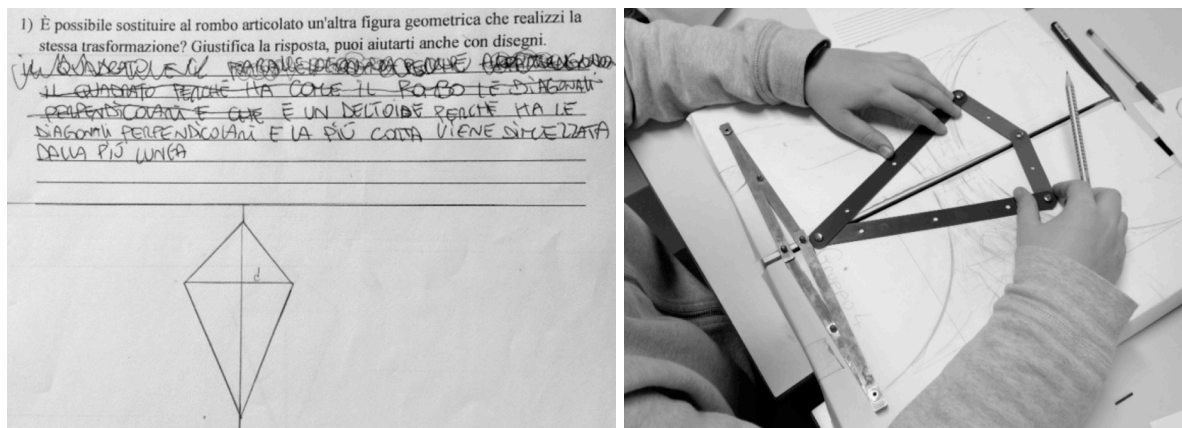 1) È possibile sostituire al rombo articolato un'altra figura geometrica che realizzi la
stessa trasformazione? Giustifica la risposta, puoi aiutarti anche con disegni.
IL QUADRATO PERCHÉ HA COME IL ROMBO LE DIAGONALI
PERPENDICOLARI E CHE È UN DELTOIDE PERCHÉ HA LE
DIAGONALI PERPENDICOLARI E LA PIÙ COTTA VIENE DIMEZZATA
DALLA PIÙ LUNGA
d